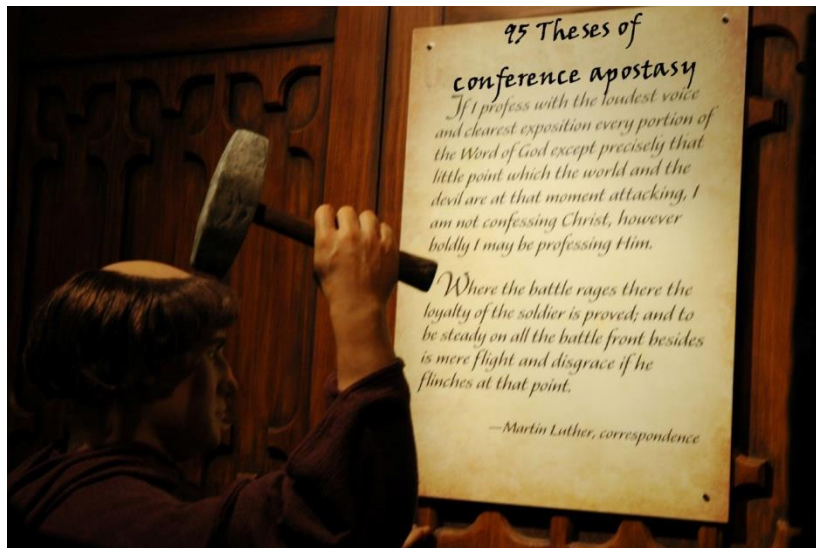 95 Theses of
conference apostasy
If I profess with the loudest voice
and clearest exposition every portion of
the Word of God except precisely that
little point which the world and the
devil are at that moment attacking, I
am not confessing Christ, however
boldly I may be professing Him.
Where the battle rages there the
loyalty of the soldier is proved; and to
be steady on all the battle front besides
is mere flight and disgrace if he
flinches at that point.
—Martin Luther, correspondence